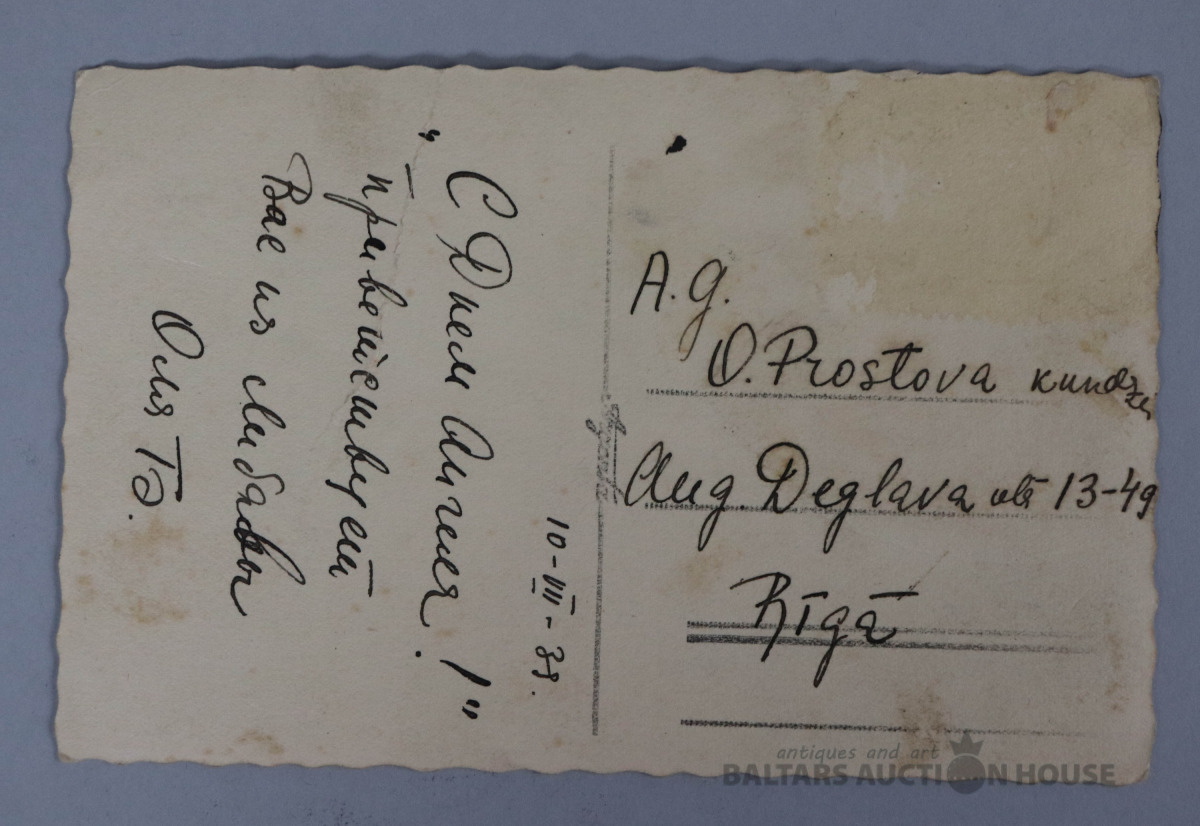 10-VIII-38.
„С Днем Ангела!“
приветствует
Вас из Либавы
Оля ТБ.
A. G.
O. Prostova kundzei
Aug. Deglava ielā 13-49
Rīgā
antiques and art
BALTARS AUCTION HOUSE